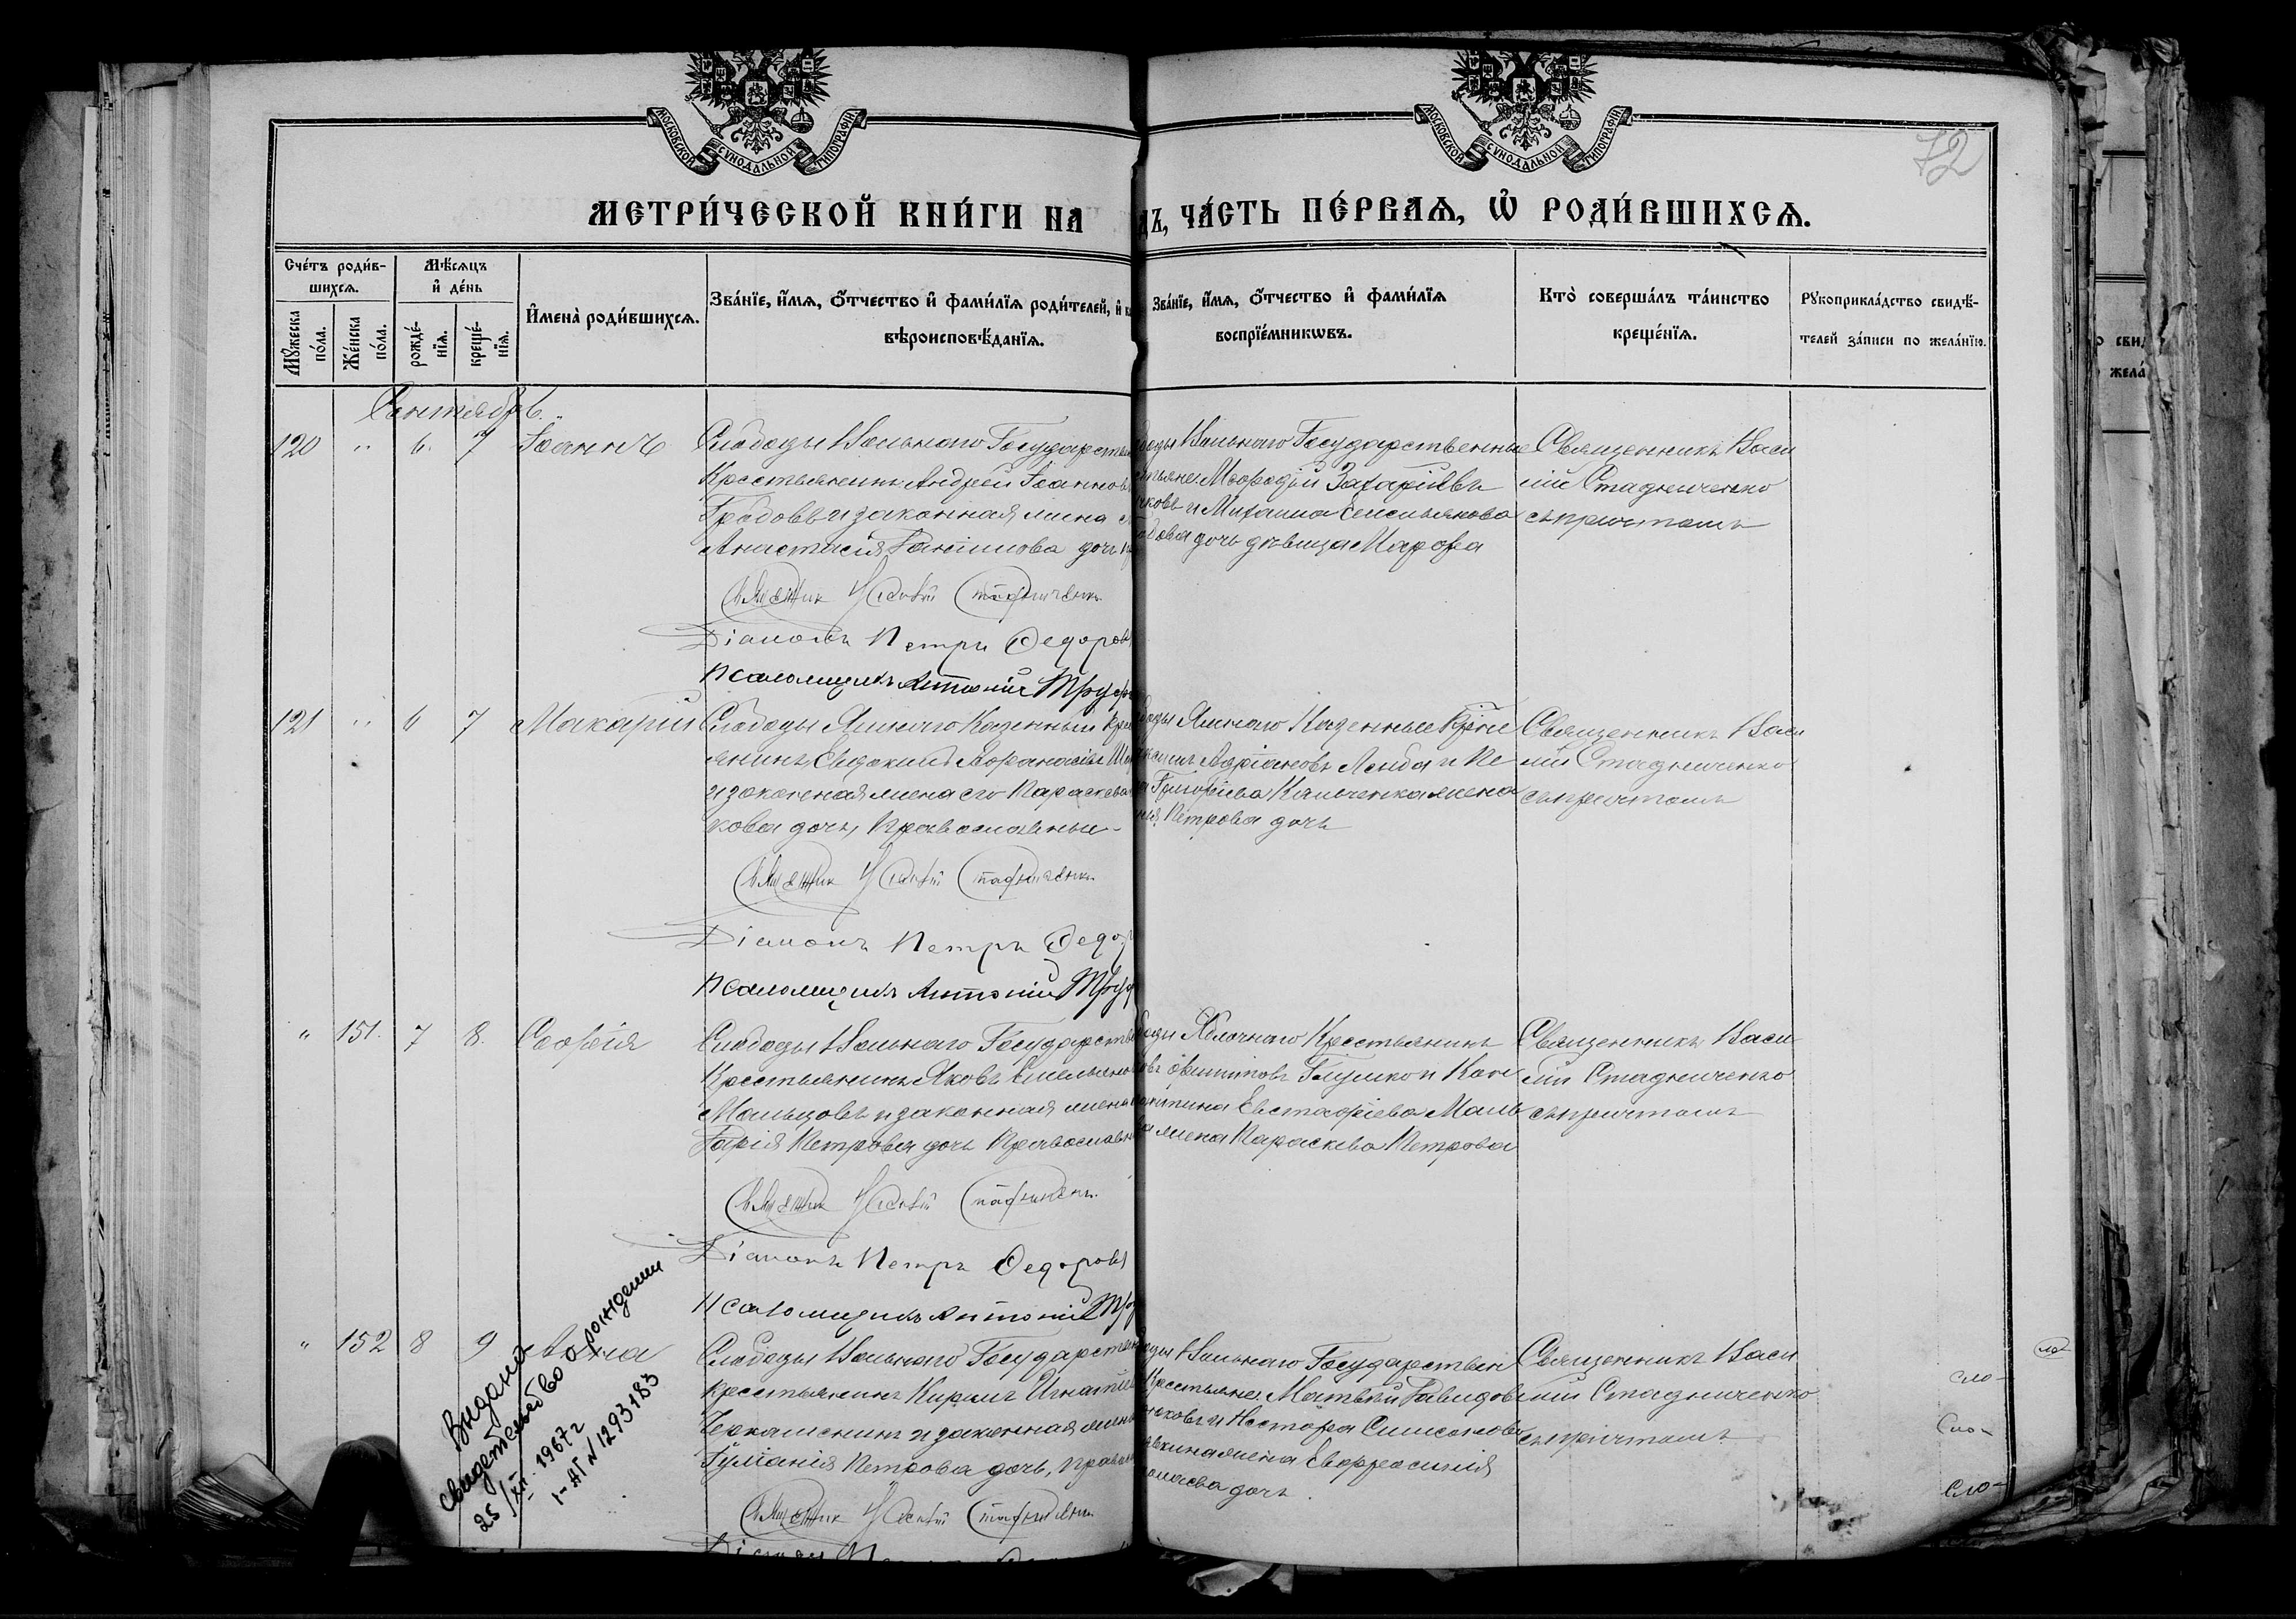 МОСКОВСКОЙ СѴНОДАЛЬНОЙ ТИПОГРАФІИ
МОСКОВСКОЙ СѴНОДАЛЬНОЙ ТИПОГРАФІИ
72
МЕТРИ́ЧЕСКОЙ КНИ́ГИ НА
ДЪ, ЧА́СТЬ ПЕ́РВАѦ, Ѡ҆ РОДИ́ВШИХСѦ.
Сче́тъ роди́в-
шихсѧ.
Мѣ́сѧцъ
и҆ де́нь
Мꙋ́жеска
по́ла.
Же́нска
по́ла.
рожде́-
нїѧ.
креще́-
нїѧ.
И҆мена̀ роди́вшихсѧ.
Зва́нїе, и҆́мѧ, ѻ҆́тчество и҆ фами́лїѧ роди́телей, и҆
вѣроисповѣ́данїѧ.
Зва́нїе, и҆́мѧ, ѻ҆́тчество и҆ фами́лїѧ
воспрїе́мникѡвъ.
Кто̀ соверша́лъ та́инство
креще́нїѧ.
Рꙋкоприкла́дство свидѣ́-
телей за́писи по жела́нїю.
Сентябрь.
120 " 6. 7 Іоаннъ
Слободы Вольнаго Государствен
Крестьянинъ Андрей Іоаннов
Градовъ и законная жена
Анастасія дочь
Священник Василій Стадниченко
Діаконъ Петръ Федоров
Псаломщикъ Антоній Труф
боды Вольнаго Государственные
стьяне Меѳодій Захаріевъ
чковъ и Михаила Емельянова
дова дочь дѣвица Марѳа
Священникъ Васи
лій Стадниченко
съ причтомъ
121 " 6 7 Макарій
Слободы Яминаго Казенный Кре
янинъ Евдокимъ Аѳанасіев
и законная жена его Параскева
кова дочь, Православные
Священник Василій Стадниченко
Діаконъ Петръ Федор
Псаломщикъ Антоній Труф
боды Яминаго Казенные
Адріановъ Ленда и Пе
Григоріева Кашченка жена
Петрова дочь
Священникъ Васи
лій Стадниченко
съ причтомъ
" 151. 7 8. Софія
Слободы Вольнаго Государстве
Крестьянинъ Яковъ Емельянов
Мальцовъ и законная жена
Дарія Петрова дочь Православн
Священник Василій Стадниченко
Діаконъ Петръ Федоровъ
Псаломщикъ Антоній Тру
боды Яблочнаго Крестьянинъ
Филиповъ Глушко и Кон
антина Евстафіева Маль
ва жена Параскева Петрова
Священникъ Васи
лій Стадниченко
съ причтомъ
" 152 8 9 Анна
Слободы Вольнаго Государствен
Крестьянинъ Кирилъ Игнатіе
Черкашенинъ и законная жена
Іуліанія Петрова дочь, Правос
Священник Василій Стадниченко
Діаконъ
боды Вольнаго Государствен
Крестьяне, Матвѣй Давидов
ньковъ и Нестора Симонова
жена Евфросинія
дочь
Священникъ Васи
лій Стадниченко
съ причтомъ
Выдано
свидетельство о рождении
25/XI. 1967 г
I-АГ № 1293183
сло-
Сло-
Сло-